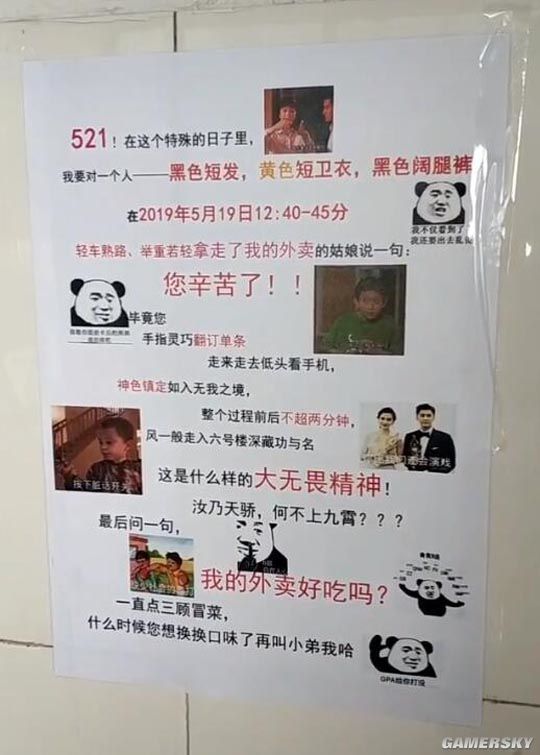 521！在这个特殊的日子里，
我要对一个人——黑色短发，黄色短卫衣，黑色阔腿裤
在2019年5月19日12:40-45分
我不仅看到了
我还要出去乱说
轻车熟路、举重若轻拿走了我的外卖的姑娘说一句：
您辛苦了！！
毕竟您
手指灵巧翻订单条
走来走去低头看手机，
神色镇定如入无我之境，
整个过程前后不超两分钟，
风一般走入六号楼深藏功与名
按下脏话开关
这是什么样的大无畏精神！
汝乃天骄，何不上九霄？？？
最后问一句，
我的外卖好吃吗？
一直点三顾冒菜，
什么时候您想换换口味了再叫小弟我哈
GPA给你打没
GAMERSKY